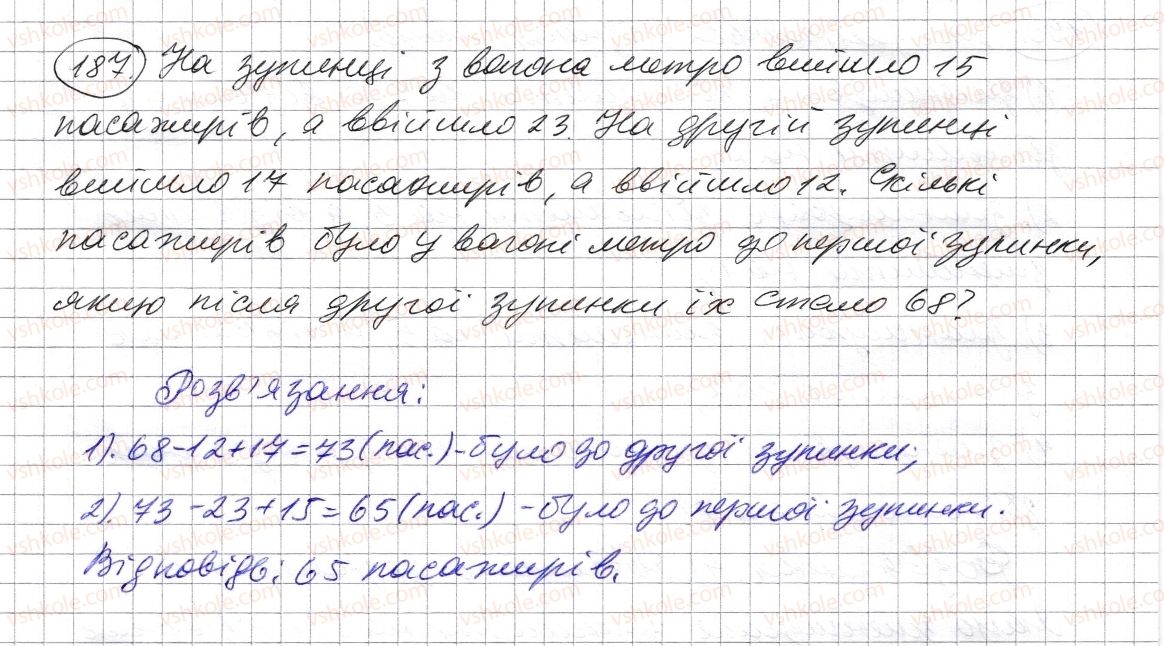 187. На зупинці з вагона метро вийшло 15
пасажирів, а ввійшло 23. На другій зупинці
вийшло 17 пасажирів, а ввійшло 12. Скількі
пасажирів було у вагоні метро до першої зупинки,
якщо після другої зупинки їх стало 68?
Розв'язання:
1). 68-12+17=73(пас.)-було до другої зупинки;
2). 73-23+15=65(пас.) -було до першої зупинки.
Відповідь: 65 пасажирів.